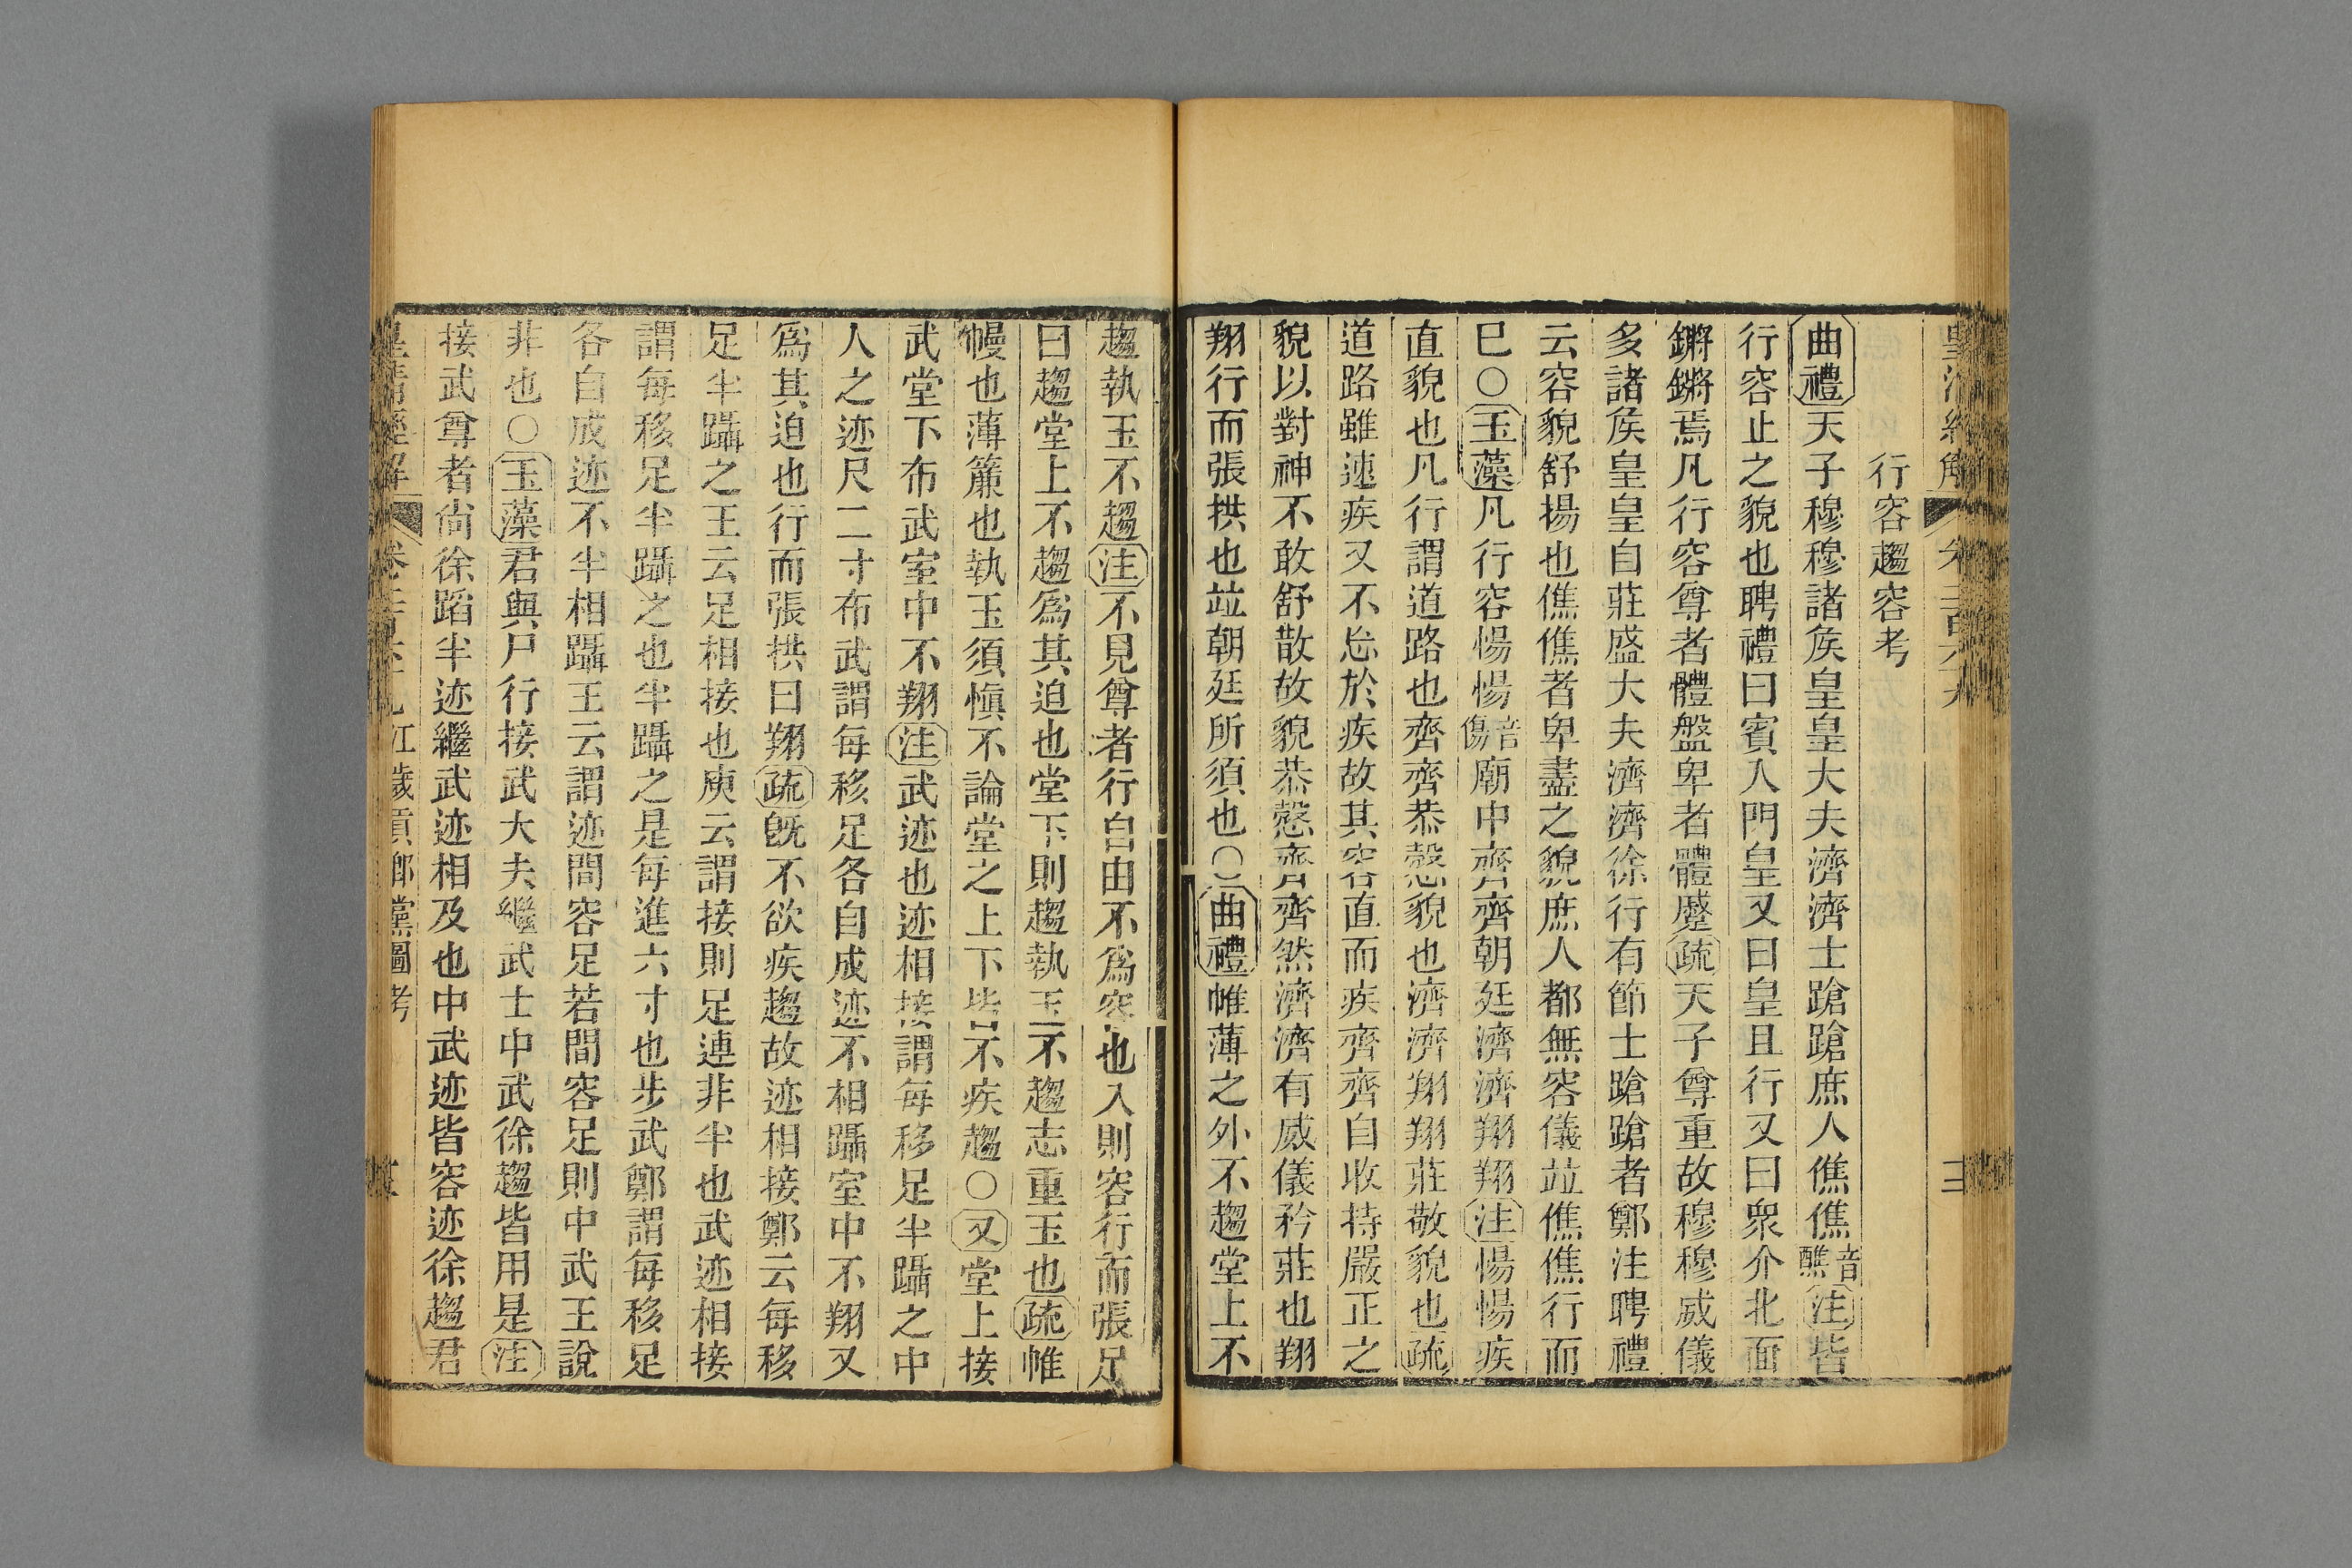 行容趨容考
曲禮天子穆穆諸矦皇皇大夫濟濟士蹌蹌庶人僬僬音醮注皆
行容止之貌也聘禮曰賓入門皇又曰皇且行又曰衆介北面
鏘鏘焉凡行容尊者體盤卑者體蹙疏天子尊重故穆穆威儀
多諸矦皇皇自莊盛大夫濟濟徐行有節士蹌蹌者鄭注聘禮
云容貌舒揚也僬僬者卑盡之貌庶人都無容儀竝僬僬行而
巳〇玉藻凡行容愓愓音傷廟中齊齊朝廷濟濟翔翔注愓愓疾
直貌也凡行謂道路也齊齊恭慤貌也濟濟翔翔莊敬貌也疏
道路雖速疾又不忘於疾故其容直而疾齊齊自收持嚴正之
貌以對神不敢舒散故貌恭慤齊齊然濟濟有威儀矜莊也翔
翔行而張拱也竝朝廷所須也〇曲禮帷薄之外不趨堂上不
趨執玉不趨注不見尊者行自由不爲容也入則容行而張足
曰趨堂上不趨爲其迫也堂下則趨執玉不趨志重玉也疏帷
幔也薄簾也執玉須愼不論堂之上下皆不疾趨〇又堂上接
武堂下布武室中不翔注武迹也迹相接謂每移足半躡之中
人之迹尺二寸布武謂每移足各自成迹不相躡室中不翔又
爲其迫也行而張拱曰翔疏旣不欲疾趨故迹相接鄭云每移
足半躡之王云足相接也庾云謂接則足連非半也武迹相接
謂每移足半躡之也半躡之是每進六寸也步武鄭謂每移足
各自成迹不半相躡王云謂迹間容足若間容足則中武王說
非也〇玉藻君與尸行接武大夫繼武士中武徐趨皆用是注
接武尊者尙徐蹈半迹繼武迹相及也中武迹皆容迹徐趨君
皇淸經解
江歲貢鄕黨圖考